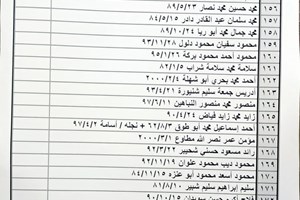 ١٥٦ محمد حسين محمد نصار ٨٩/٥/٢٣
١٥٧ محمد سلمان عبد القادر دادر ٨٤/٥/١٤
١٥٨ محمد جمال محمد أبو ريا ٨٩/١٠/٢٤
١٥٩ محمود سفيان محمود دلول ٩٣/١١/٢٨
١٦٠ محمود أحمد محمود بركة ٩٥/١/٢٦
١٦١ سلامة محمد سلامة شراب ٨٢/١/٥
١٦٢ أحمد محمد بحري أبو شهلة ٢٠٠٠/٢/٤
١٦٣ أدريس جمعة سليم شنيورة ٩٣/٤/٢١
١٦٤ منصور محمد منصور النباهين ٩٧/٦/١١
١٦٥ زايد محمد زايد فياض ٩٠/٤/٢٤
١٦٦ أحمد إسماعيل محمد أبو طوق ٦٢/٨/٣ + نجله / أسامة ٩٧/٤/٢
١٦٧ مؤمن عمر نصر الله مطاوع ٢٠٠٠/٣/١
١٦٨ رائد مسعود حسني شحيبر ٩٢/٣/٢
١٦٩ محمود ديب محمود علوان ٩٢/١١/١٩
١٧٠ محمود أسعد محمود أبو عنزه ٨٤/١١/١٥
١٧١ سليم إبراهيم سليم شبير ٨١/٨/١٠
٩٠/١٠/١٥